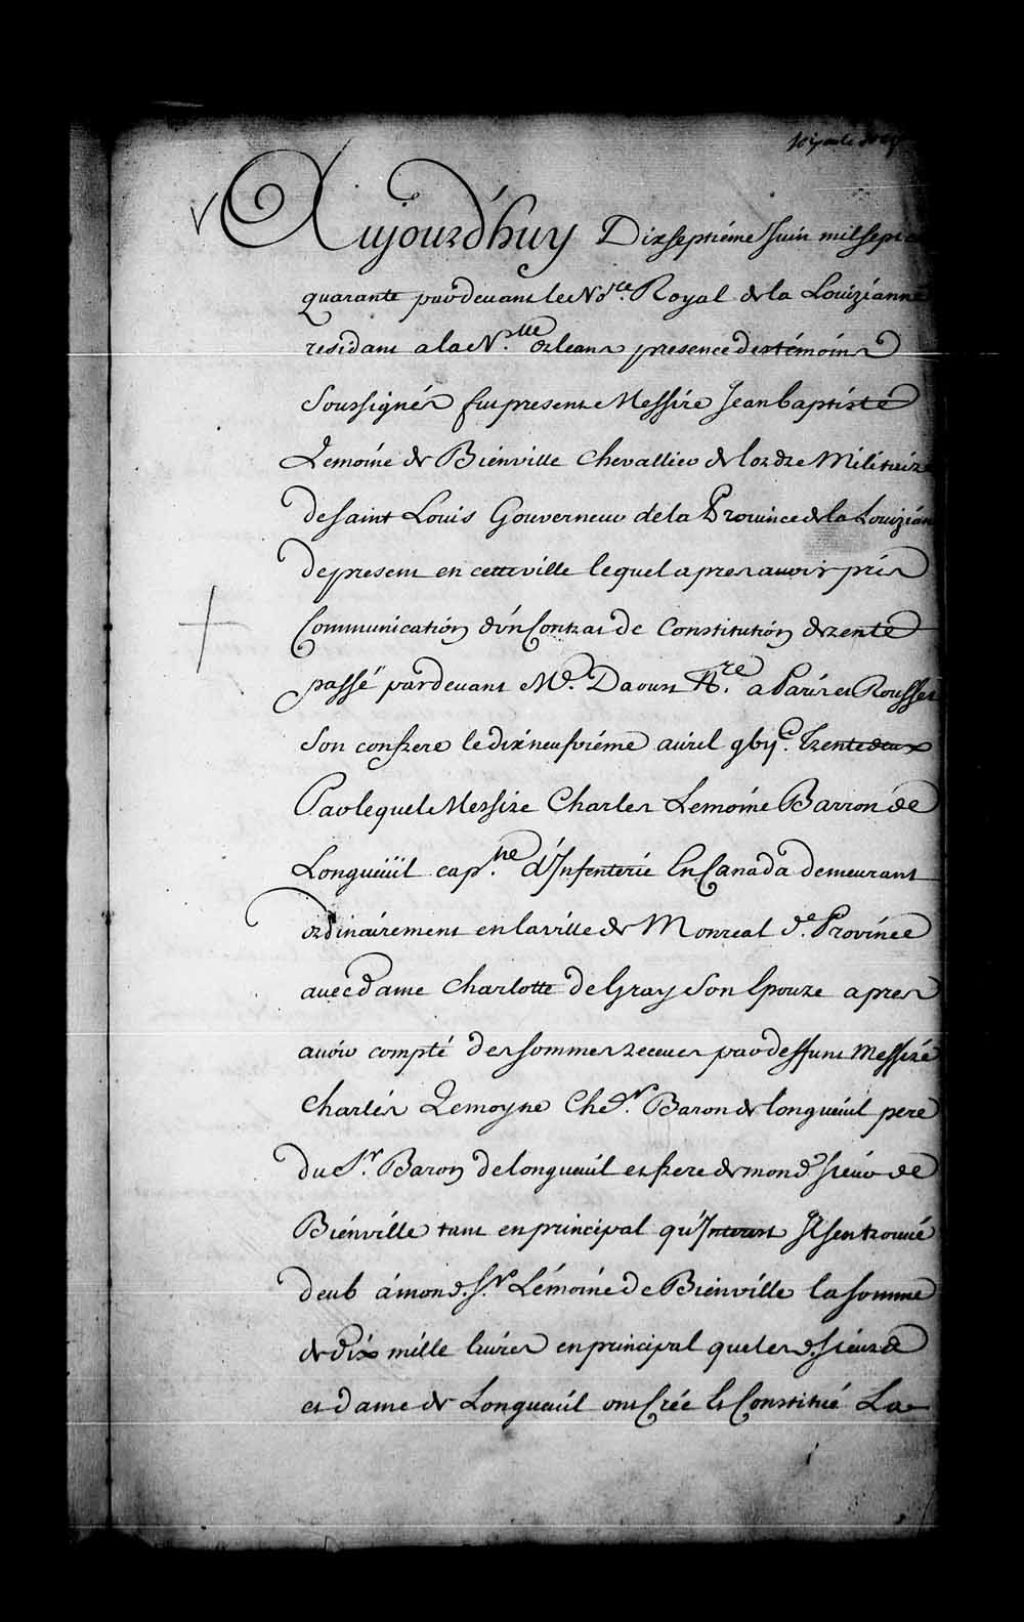 Aujourd'huy Dixseptiéme Juin mil sept
quarante pardevant le No.re Royal de la Louizianne
residant a la N.lle orleans presence des témoins
Soussignés fut present Messire Jean baptiste
Lemoine de Bienville Chevallier de lordre Militaire
de saint Louis Gouverneur de la Province de la Louizian
de present en cette ville lequel apres avoir pris
Communication d'ún Contrat de Constitution de rente
passé pardevant Me. Daoust N.re a Paris et Rousse
Son confrere le dix neufviéme avril gbijc. Trente deux
Par lequel Messire Charles Lemoine Barron de
Longueüil cap.ne d'Infenterie En Canada demeurant
ordinairement en la ville de Monreal d.e Province
avec dame Charlotte de Gray Son Epouze apres
avoir compté des sommes receues par deffunt Messire
Charles Lemoyne Cher. Baron de longueüil pere
du Sr. Baron de longueuil et frere de mond. sieur de
Biénville tant en principal qu'Interest Il sen trouvé
deub á mond. Sr. Lémoine de Bienville la somme
de dix mille livres en principal que les d. sieur
et dame de Longueüil ont Créé Et Constitué La